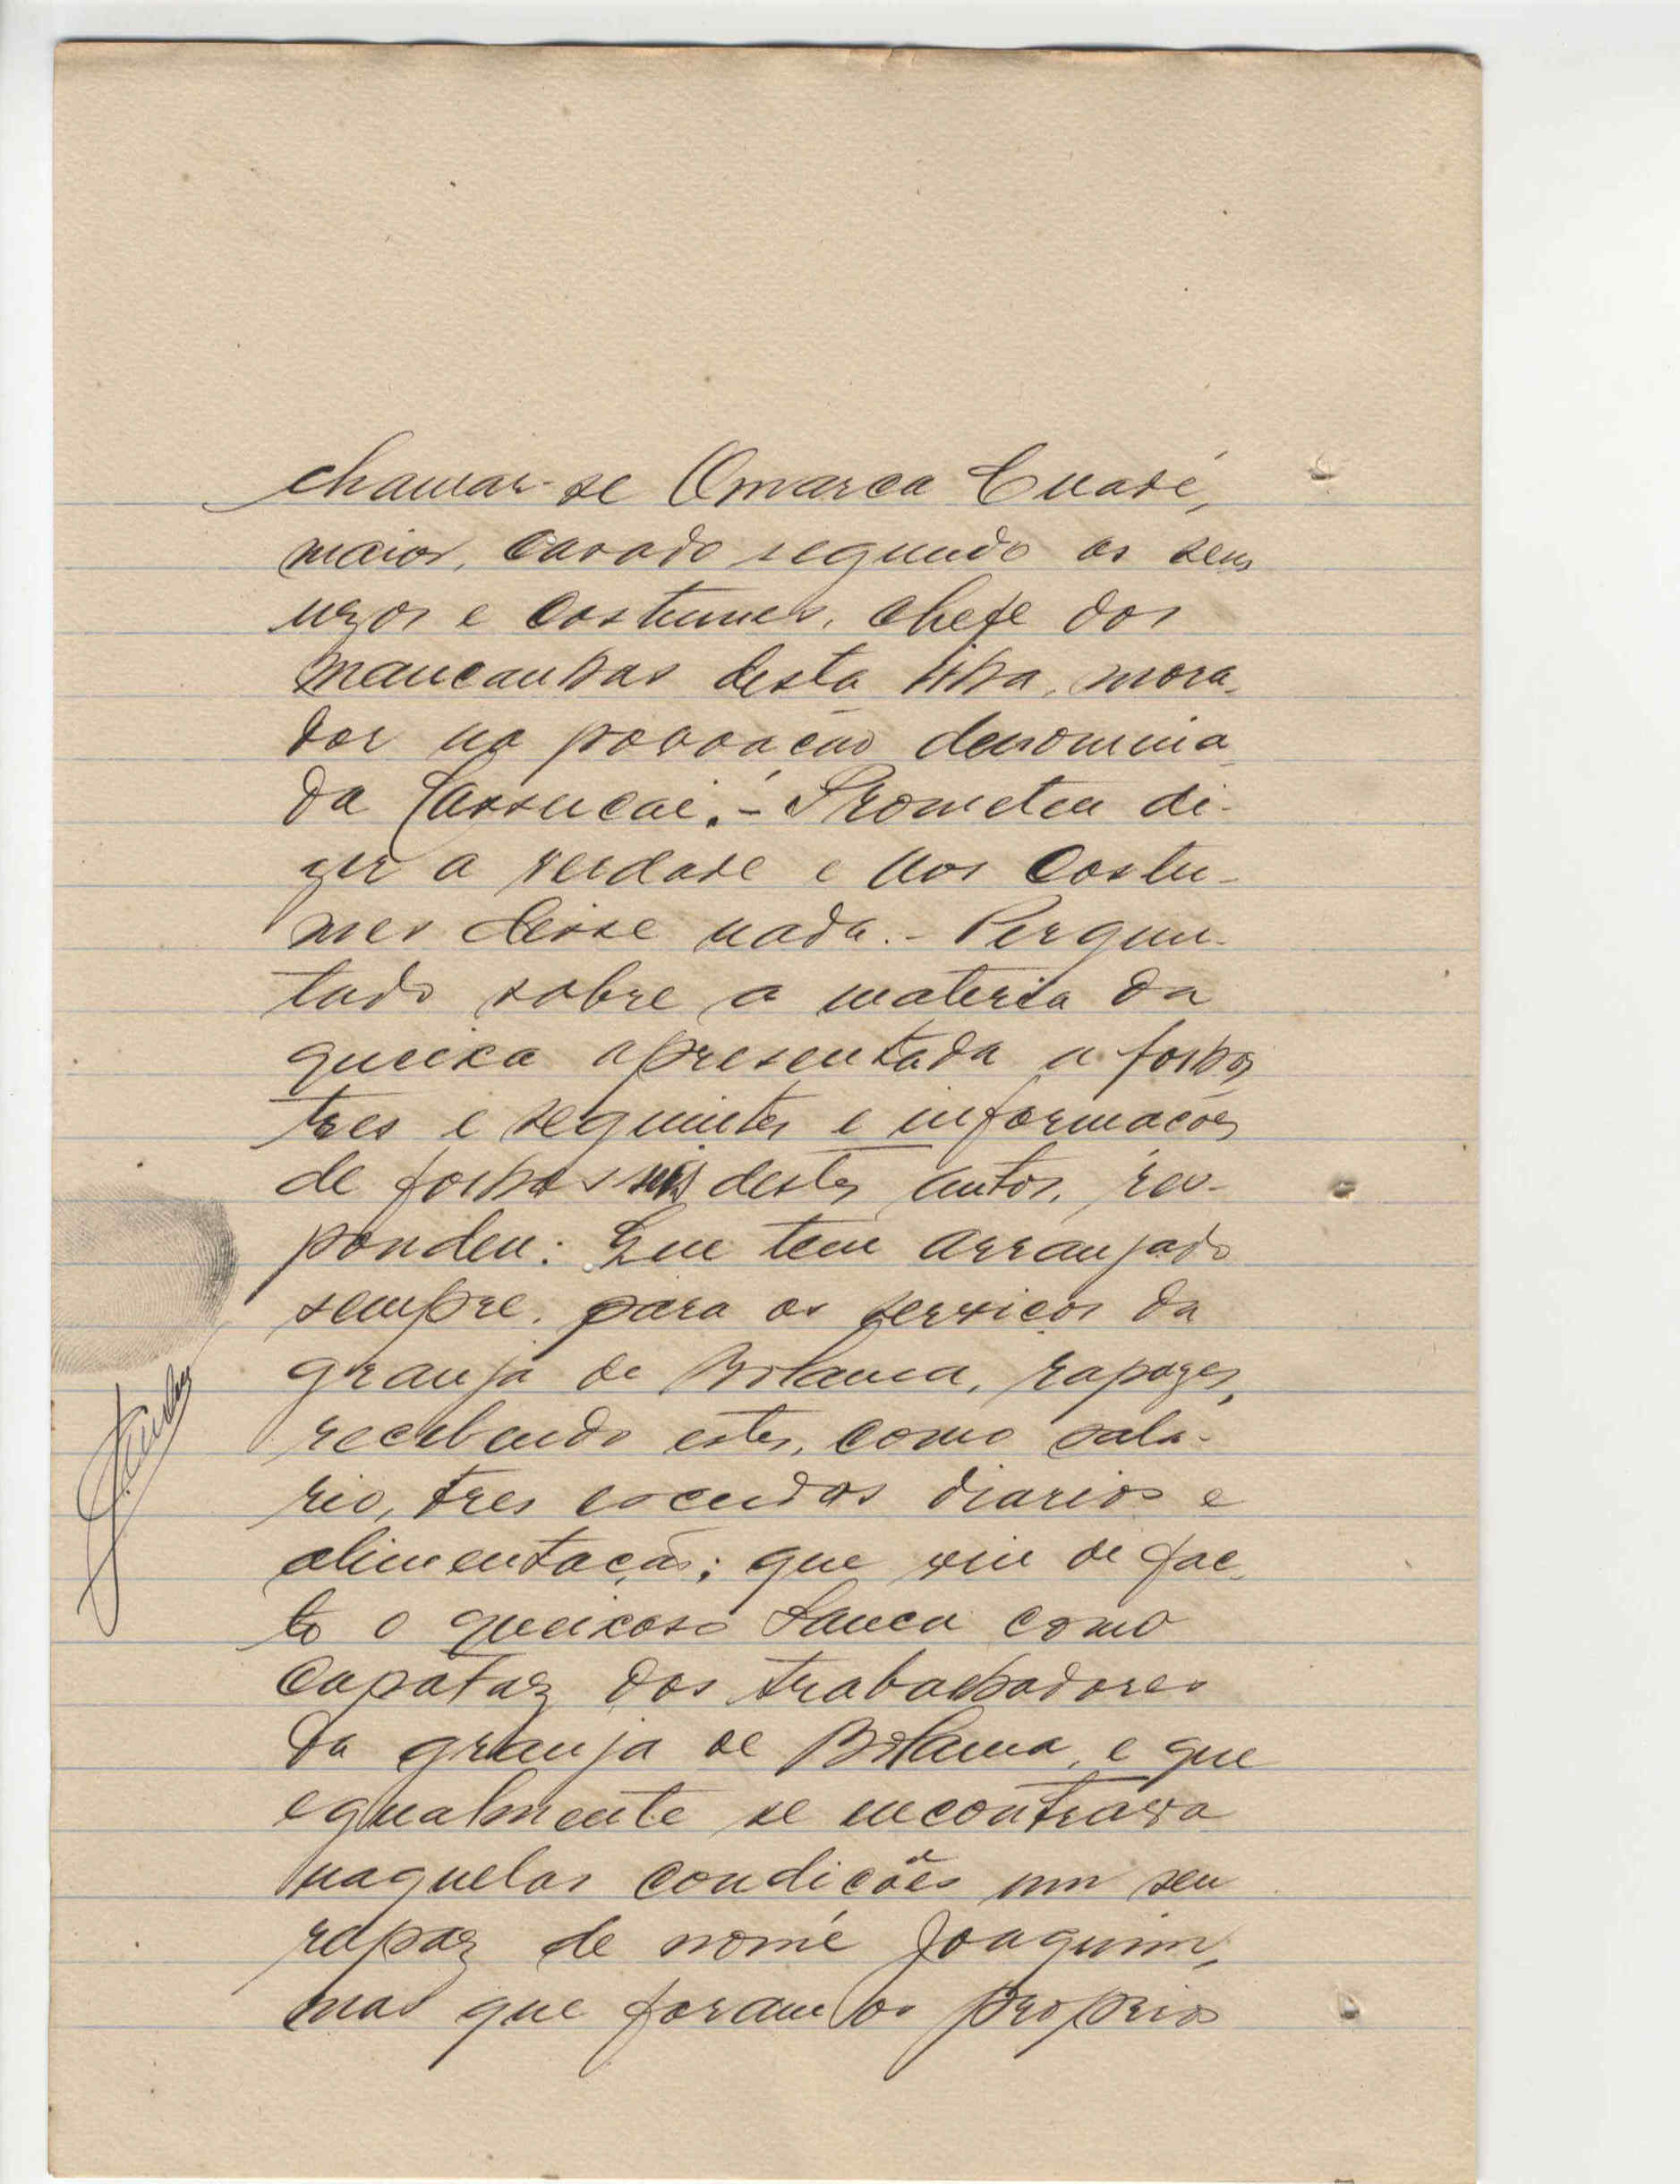 chamar-se Omarca Cuadé,
maior, casado segundo os seus
uzos e costumes, chefe dos
mancanhas desta ilha, mora-
dor na povoação denomina-
da Cassucai.- Prometeu di-
zer a verdade e aos costu-
mes disse nada.- Pergun-
tado sobre a materia da
queixa apresentada a folhas
tres e seguintes e informações
de folhas seis destes autos, res-
pondeu: Que tem arranjado
sempre, para os serviços da
granja de Bolama, rapazes,
recebendo estes, como sala-
rio, tres escudos diarios e
alimentação; que viu de fac-
to o queixoso Lanca como
capataz dos trabalhadores
da granja de Bolama, e que
egualmente se encontrava
naquelas condições um seu
rapaz de nome Joaquim,
mas que foram os proprios